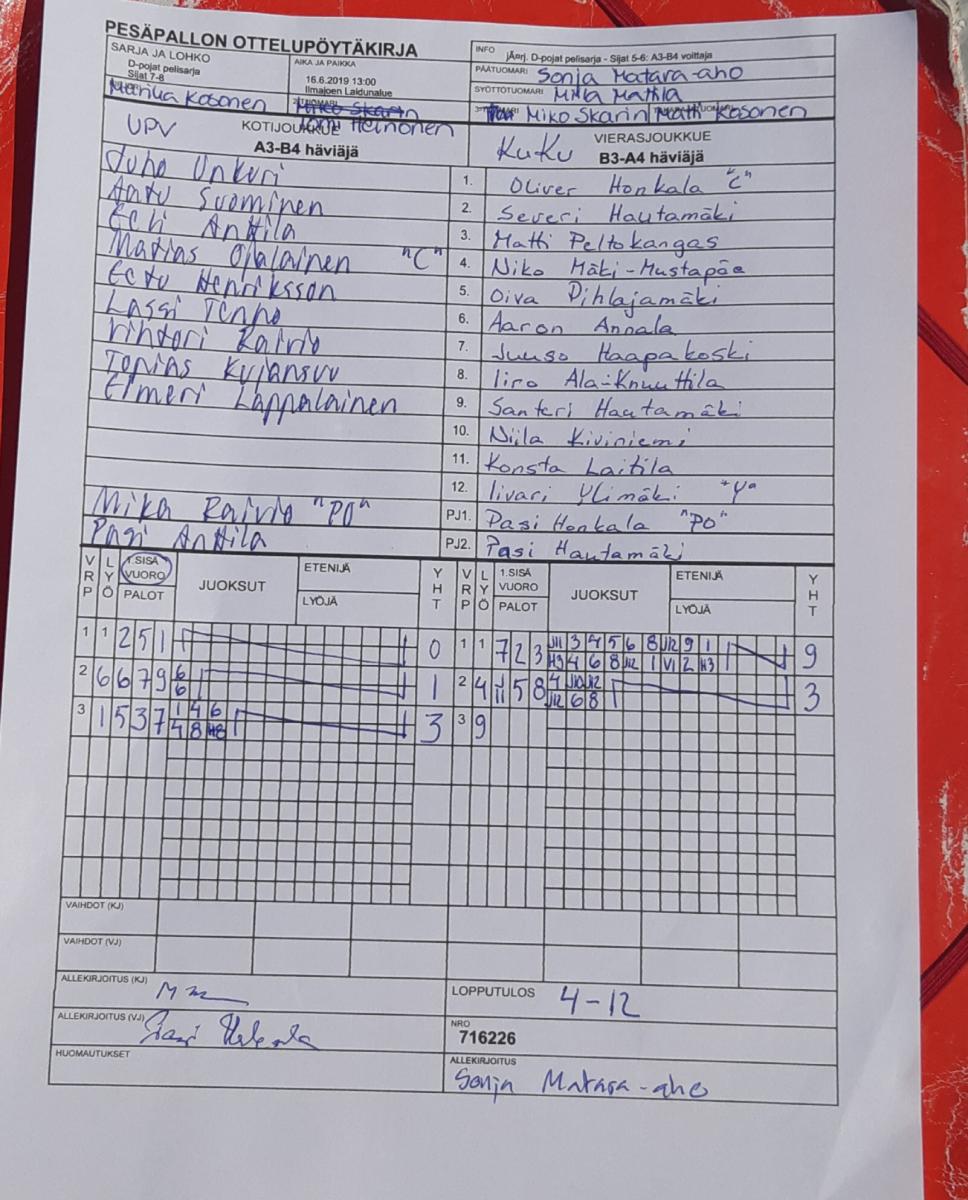 PESÄPALLON OTTELUPÖYTÄKIRJA
SARJA JA LOHKO
D-pojat pelisarja
Sijat 7-8
Marilla Kosonen
AIKA JA PAIKKA
16.6.2019 13:00
Ilmajoen Laidunalue
Miko Skarin
Tomi Heinonen
INFO
jÄarj. D-pojat pelisarja - Sijat 5-6: A3-B4 voittaja
PÄÄTUOMARI Sonja Matara-aho
SYÖTTÖTUOMARI Milla Mattila
Miko Skarin Matti Kosonen
UPV KOTIJOUKKUE
A3-B4 häviäjä
KuKu VIERASJOUKKUE
B3-A4 häviäjä
Juho Unkuri 1. Oliver Honkala "C"
Anttu Suominen 2. Severi Hautamäki
Eeli Anttila 3. Matti Peltokangas
Matias Ojalainen "C" 4. Niko Mäki-Mustapää
Eetu Henriksson 5. Oiva Pihlajamäki
Lassi Tenho 6. Aaron Annala
Vihtori Raivio 7. Juuso Haapakoski
Topias Kujansuu 8. Iiro Ala-Knuuttila
Elmeri Lappalainen 9. Santeri Hautamäki
10. Niila Kiviniemi
11. Konsta Laitila
12. Iivari Ylimäki "Y"
Mika Raivio "PO" PJ1. Pasi Honkala "PO"
Pasi Anttila PJ2. Pasi Hautamäki
VRP LYÖ 1.SISÄ VUORO PALOT JUOKSUT ETENIJÄ LYÖJÄ YHT VRP LYÖ 1.SISÄ VUORO PALOT JUOKSUT ETENIJÄ LYÖJÄ YHT
1 1 2 5 1 0 1 1 7 2 3 J11 3 4 5 6 8 J12 9 1 9
H3 4 6 8 J12 1 V1 2 H3
2 6 6 7 9 6 1 2 4 J11 5 8 4 J10 J12 3
6 J12 6 8
3 1 5 3 7 1 4 6 3 3 9
4 8 H8
VAIHDOT (KJ)
VAIHDOT (VJ)
ALLEKIRJOITUS (KJ)
LOPPUTULOS 4-12
ALLEKIRJOITUS (VJ)
NRO
716226
HUOMAUTUKSET
ALLEKIRJOITUS
Sonja Matara-aho